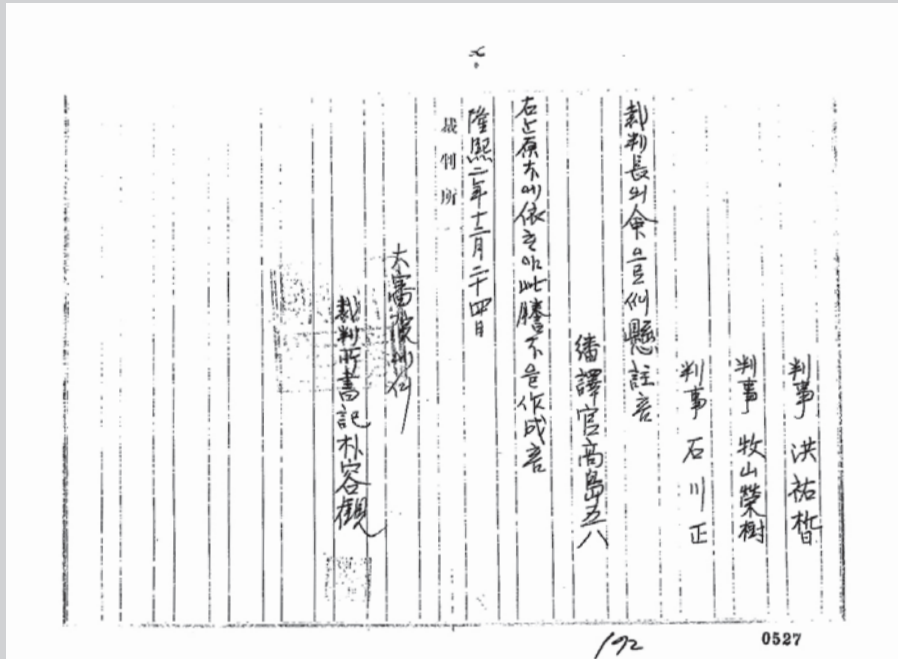 判事 洪祐晳
判事 牧山榮樹
判事 石川正
裁判長의命으로써懸註홈
繙譯官高島五八
右는原本에依ᄒᆞ야此謄本을作成홈
隆熙二年十二月二十四日
裁判所
大審院
裁判所書記朴容觀
192
0527